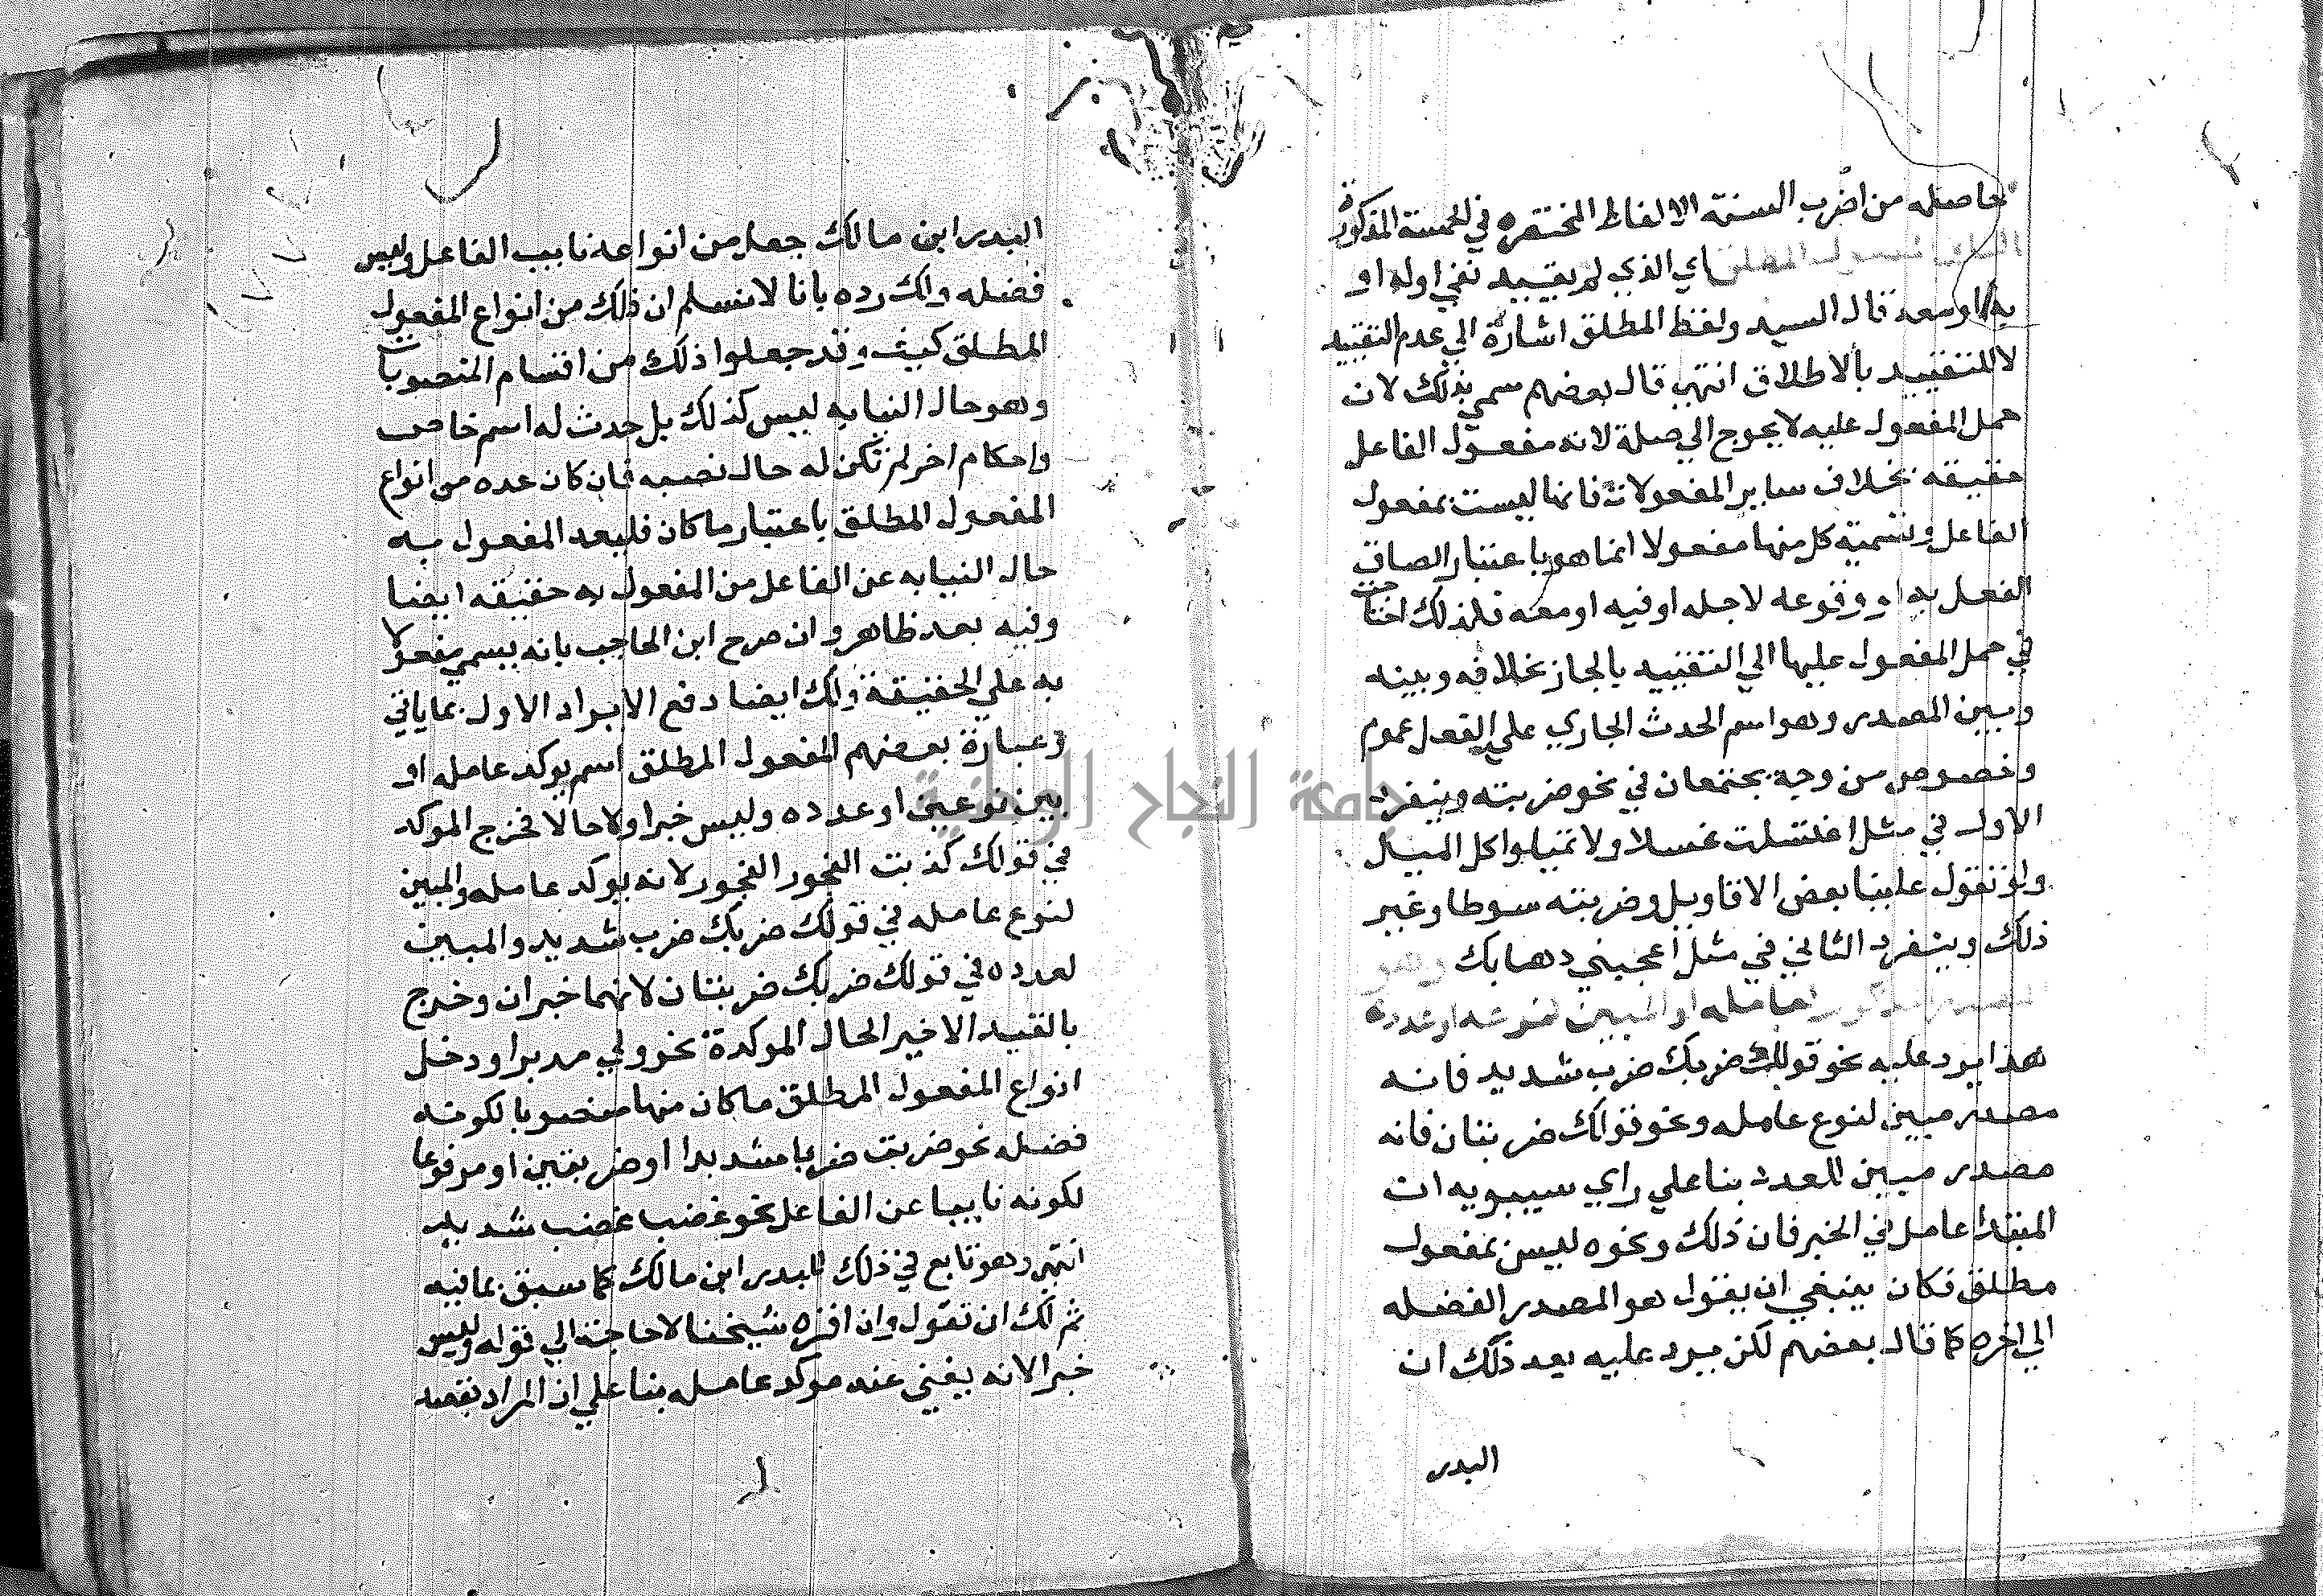 حاصله من اضرب الستة الالفاظ المختصره في الخمسة المذكورة
الثاني المفعول المطلق اي الذي لم يقيد نفي اوله او
به اومعه قال السيد ولفظ المطلق اشارة الي عدم التقييد
لا للتقييد بالاطلاق انتهي قال بعضهم سمي بذلك لان
حمل المفعول عليه لا يحوج الي صلة لانه مفعول الفاعل
حقيقه بخلاف ساير المفعولات فانها ليست بمفعول
الفاعل وتسمية كل منها مفعولا انما هو باعتبار الصاق
الفعل به او وقوعه لاجله اوفيه اومعه فلذلك احتاجت
في حمل المفعول عليها الي التقييد بالجار بخلافه وبينه
وبين المصدر وهو اسم الحدث الجاري علي الفعل عموم
وخصوص من وجه يجتمعان في نحو ضربته وينفرد
الاول في مثل اغتسلت غسلا ولا تميلوا كل الميل
ولو تقول علينا بعض الاقاويل وضربته سوطا وغير
ذلك وينفرد الثاني في مثل اعجبني ذهابك وهو
المصدر المذكور لعامله او المبين لنوعه او عدده
هذا يرد عليه نحو قولك ضربك ضرب شديد فانه
مصدر مبين لنوع عامله ونحو قولك ضربتان فانه
مصدر مبين للعدد بنا علي راي سيبويه ان
المبتدا عامل في الخبر فان ذلك ونحوه ليس بمفعول
مطلق فكان ينبغي ان يقول هو المصدر الفضله
الي اخره كما قال بعضهم لكن يرد عليه بعد ذلك ان
البدر
البدر ابن مالك جعل من انواعه نايب الفاعل وليس
فضله ولك رده بانا لا نسلم ان ذلك من انواع المفعول
المطلق كيف وقد جعلوا ذلك من اقسام المنصوبات
وهو حال النيابه ليس كذلك بل حدث له اسم خاص
واحكام اخر لم تكن له حال نصبه فان كان عده من انواع
المفعول المطلق باعتبار ما كان فليعد المفعول به
حال النيابه عن الفاعل من المفعول به حقيقه ايضا
وفيه بعد ظاهر وان صرح ابن الحاجب بانه يسمي مفعولا
به علي الحقيقة ولك ايضا دفع الايراد الاول بما ياتي
وعبارة بعضهم المفعول المطلق اسم يوكد عامله او
يبين نوعه او عدده وليس خبرا ولا حالا فخرج الموكد
في قولك كذبت الفجور الفجور لانه يوكد عامله والمبين
لنوع عامله في قولك ضربك ضرب شديد والمبين
لعدده في قولك ضربك ضربتان لانهما خبران وخرج
بالقيد الاخير الحال الموكدة نحو ولي مدبرا ودخل
انواع المفعول المطلق ما كان منها منصوبا لكونه
فضله نحو ضربت ضربا شديدا او ضربتين او مرفوعا
لكونه نايبا عن الفاعل نحو غضب غضب شديد
انتهي وهو تابع في ذلك للبدر ابن مالك كما سبق بما فيه
ثم لك ان تقول وان اقره شيخنا لا حاجة الي قوله وليس
خبرا لانه يغني عنه موكد عامله بنا علي ان المراد بقصد
جامعة النجاح الوطنية